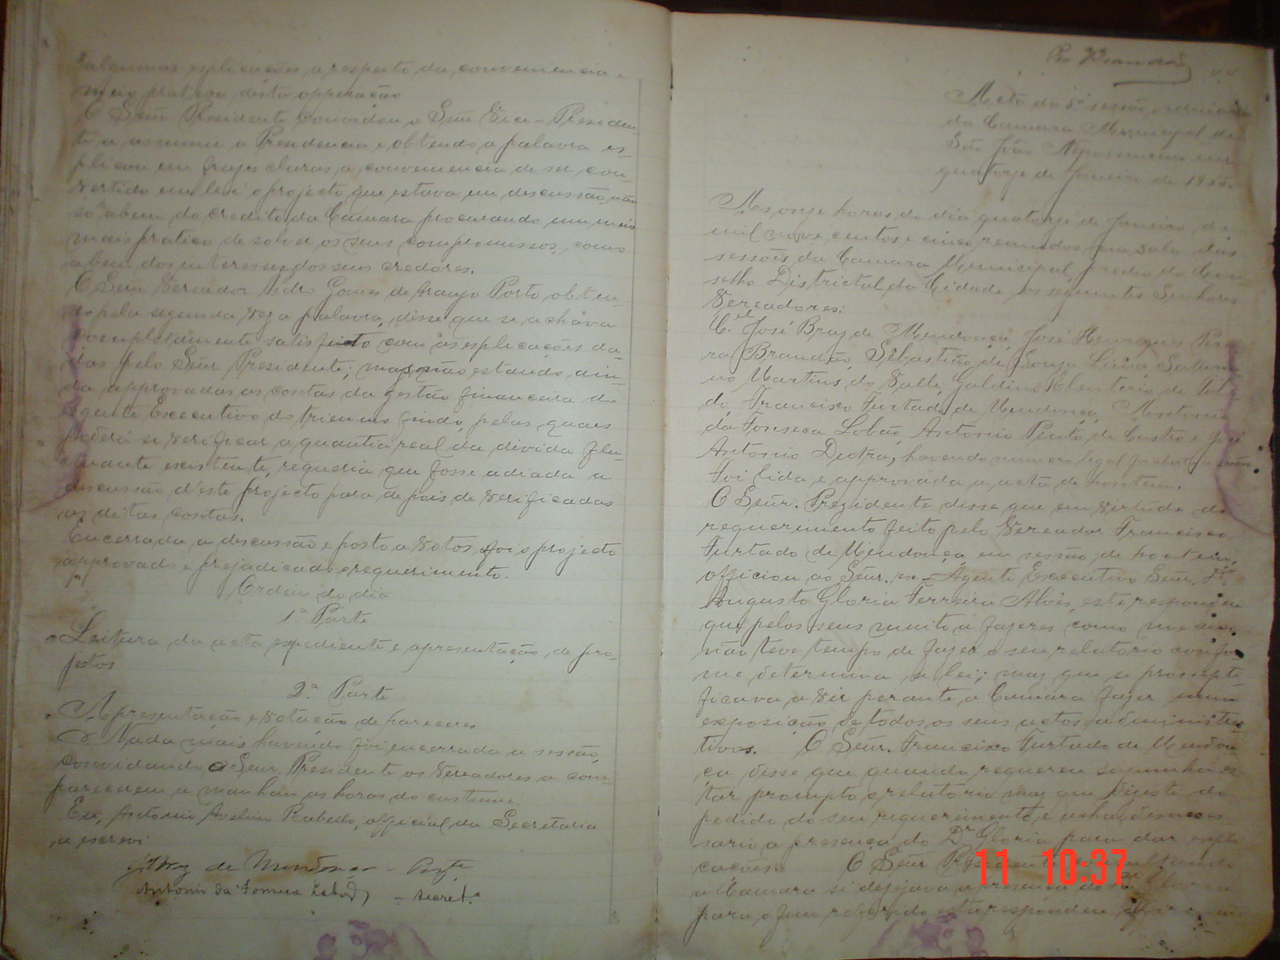 algumas esplicações, a respeito da conveniencia e
meio pratico desta operação
O Senr Presidente convidou o Senr Vice-Presiden-
te a assumir a Presidencia e obtendo a palavra es-
plicou em frazes claras, a conveniencia de ser con-
vertido em lei o projecto que estava em discussão não
só a bem do credito da Camara procurando um meio
mais pratico de solver os seus compromissos, como
a bem dos interesses dos seus credores.
O Senr Vereador Pedro Gomes de Araujo Porto obten-
do pela segunda vez a palavra, disse que se achava
completamente satisfeito com as esplicações da-
das pelo Senr Presidente; mas não estando ain-
da approvadas as contas da gestão financeira do
Agente Executivo do triennio findo, pelas quaes
poderá se verificar a quantia real da divida flu-
ctuante existente, requeria que fosse adiada a
discussão d'este projecto para depois de verificadas
as ditas contas.
Encerrada a discussão e posto a votos foi o projecto
approvado e prejudicado o requerimento.
Ordem do dia
1ª Parte
Leitura da acta expediente e apresentação de pro-
jectos
2ª Parte
Apresentação e votação de pareceres
Nada mais havendo foi encerrada a sessão,
convidando o Senr Presidente os Vereadores a com-
parecerem a manhan as horas do costume
Eu, Antonio Avelino Rabello, official da Secretaria
a escrevi
Braz de Mendonça - Presite
Antonio da Fonseca Lobão - secret.
Brandão
44
Acta da 5ª sessão ordinaria
da Camara Municipal de
São João Nepomuceno em
quatorze de Janeiro de 1905.
As onze horas do dia quatorze de Janeiro de
mil nove centos e cinco reunidos na sala das
sessões da Camara Municipal, predio do Con-
selho Districtal da Cidade os seguintes Senhores
Vereadores:
José Braz de Mendonça, José Henriques Perei-
ra Brandão, Sebastião de Souza Lima, Saturni-
no Martins do Valle, Galdino Eleuterio de
Francisco Furtado de Mendonça, Antonio
da Fonseca Lobão, Antonio Pinto de Castro e José
Antonio Dutra, havendo numero legal
Foi lida e approvada a acta de hontem.
O Senr. Prezidente disse que em virtude do
requerimento feito pelo Vereador Francisco
Furtado de Mendonça em sessão de hontem,
officiou ao Senr. ex-Agente Executivo Senr. Dr.
Augusto Gloria Ferreira Alves, este respondeu
que pelos seus muitos afazeres como medico
não teve tempo de fazer o seu relatorio confor-
me determina a lei; mas que se promptι-
ficava a vir perante a Camara fazer uma
exposição de todos os seus actos administra-
tivos. O Senr. Francisco Furtado de Mendon-
ça disse que quando requereu suppunha es-
tar prompto o relatorio mas que desiste do
pedido do seu requerimento, e acha desneces-
sario a presença do Dr Gloria para dar espli-
cações. O Senr Presidente consultando
a Camara si desejava a presença do Dr Gloria
para o fim referido esta respondeu
11 10:37